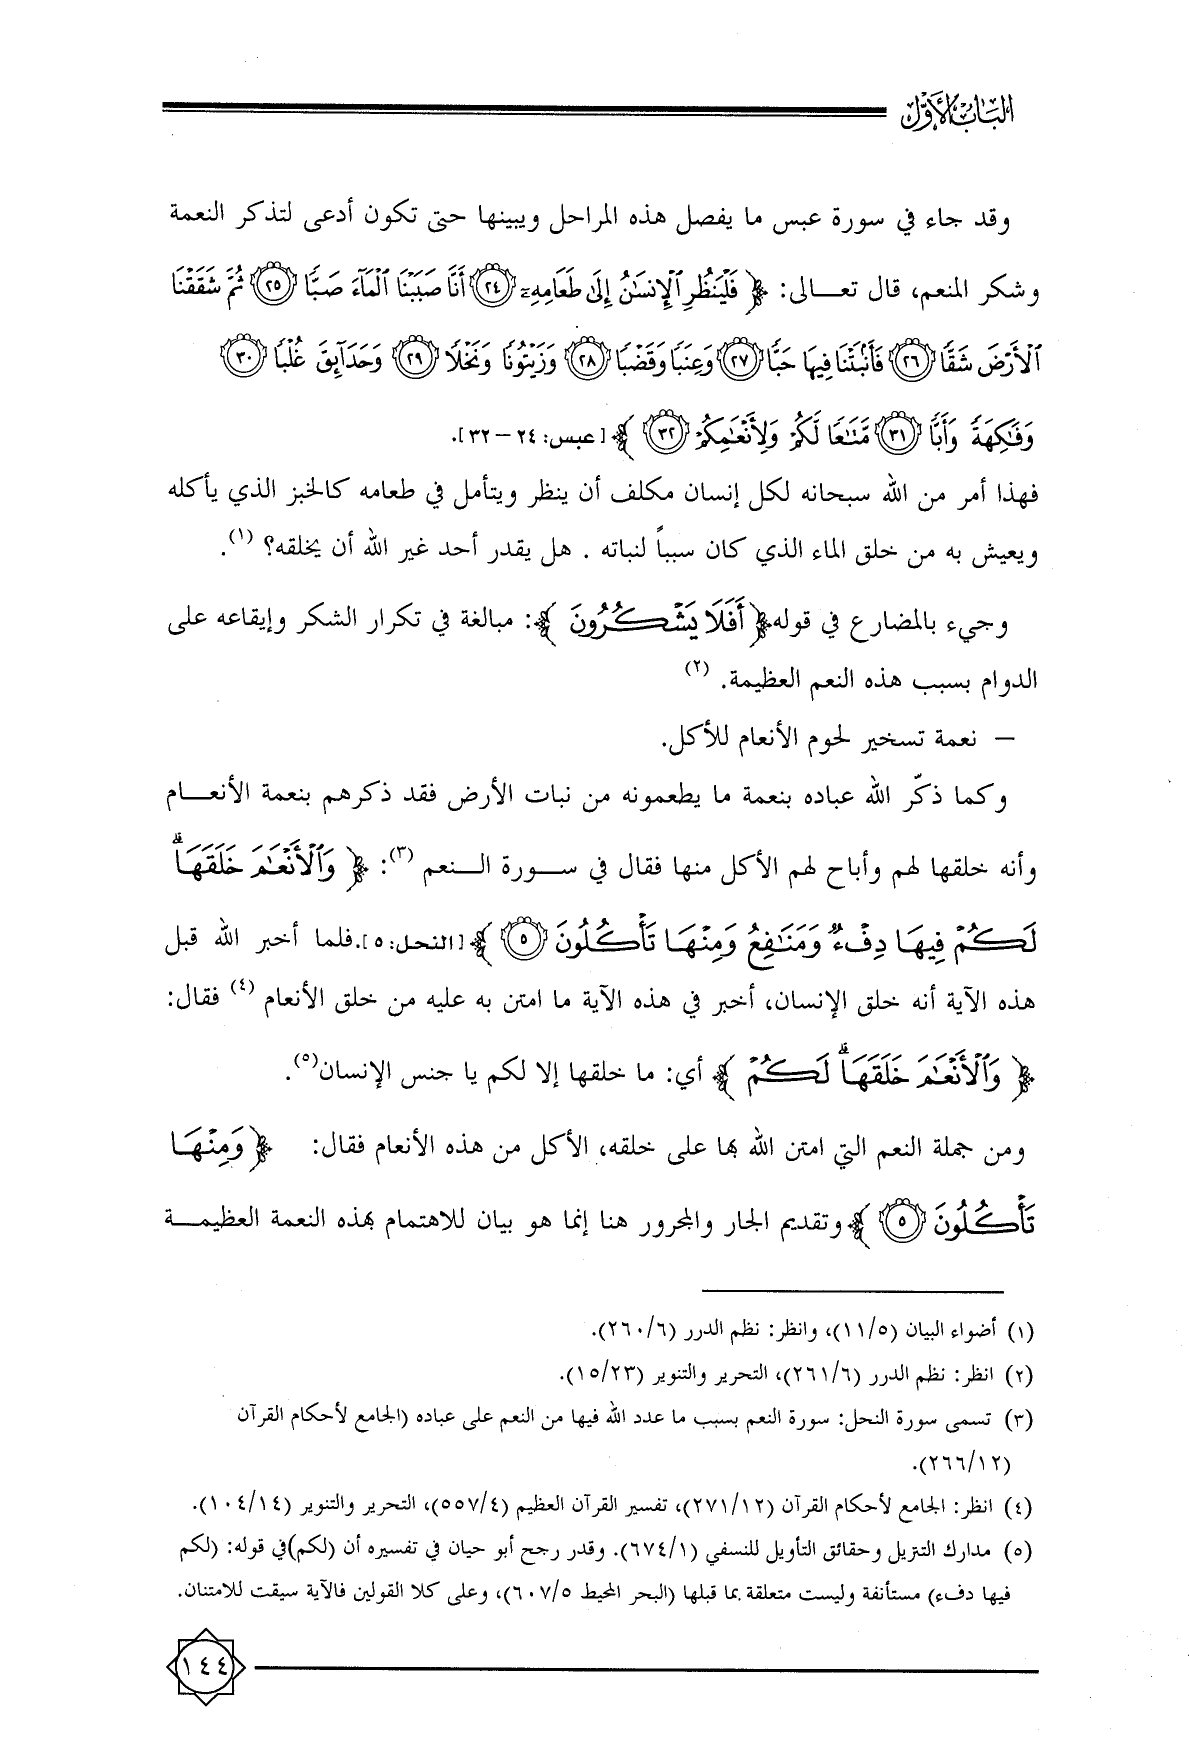 الباب الأول
وقد جاء في سورة عبس ما يفصل هذه المراحل ويبينها حتى تكون أدعى لتذكر النعمة
وشكر المنعم، قال تعـــالى: ﴿ فَلْيَنظُرِ ٱلْإِنسَٰنُ إِلَىٰ طَعَامِهِۦٓ ﴿٢٤﴾ أَنَّا صَبَبْنَا ٱلْمَآءَ صَبًّا ﴿٢٥﴾ ثُمَّ شَقَقْنَا
ٱلْأَرْضَ شَقًّا ﴿٢٦﴾ فَأَنۢبَتْنَا فِيهَا حَبًّا ﴿٢٧﴾ وَعِنَبًا وَقَضْبًا ﴿٢٨﴾ وَزَيْتُونًا وَنَخْلًا ﴿٢٩﴾ وَحَدَآئِقَ غُلْبًا ﴿٣٠﴾
وَفَٰكِهَةً وَأَبًّا ﴿٣١﴾ مَّتَٰعًا لَّكُمْ وَلِأَنْعَٰمِكُمْ ﴿٣٢﴾ ﴾ [عبس: ٢٤ – ٣٢].
فهذا أمر من الله سبحانه لكل إنسان مكلف أن ينظر ويتأمل في طعامه كالخبز الذي يأكله
ويعيش به من خلق الماء الذي كان سبباً لنباته . هل يقدر أحد غير الله أن يخلقه؟ (١).
وجيء بالمضارع في قوله﴿ أَفَلَا يَشْكُرُونَ ﴾: مبالغة في تكرار الشكر وإيقاعه على
الدوام بسبب هذه النعم العظيمة. (٢)
– نعمة تسخير لحوم الأنعام للأكل.
وكما ذكّر الله عباده بنعمة ما يطعمونه من نبات الأرض فقد ذكرهم بنعمة الأنعـــام
وأنه خلقها لهم وأباح لهم الأكل منها فقال في ســورة الـــنعم (٣): ﴿ وَٱلْأَنْعَٰمَ خَلَقَهَا ۗ
لَكُمْ فِيهَا دِفْءٌ وَمَنَٰفِعُ وَمِنْهَا تَأْكُلُونَ ﴿٥﴾ ﴾ [النحل: ٥].فلما أخبر الله قبل
هذه الآية أنه خلق الإنسان، أخبر في هذه الآية ما امتن به عليه من خلق الأنعام (٤) فقال:
﴿ وَٱلْأَنْعَٰمَ خَلَقَهَا ۗ لَكُمْ ﴾ أي: ما خلقها إلا لكم يا جنس الإنسان(٥).
ومن جملة النعم التي امتن الله بها على خلقه، الأكل من هذه الأنعام فقال: ﴿ وَمِنْهَا
تَأْكُلُونَ ﴿٥﴾ ﴾ وتقديم الجار والمجرور هنا إنما هو بيان للاهتمام بهذه النعمة العظيمـــة
(١) أضواء البيان (١١/٥)، وانظر: نظم الدرر (٢٦٠/٦).
(٢) انظر: نظم الدرر (٢٦١/٦)، التحرير والتنوير (١٥/٢٣).
(٣) تسمى سورة النحل: سورة النعم بسبب ما عدد الله فيها من النعم على عباده (الجامع لأحكام القرآن
(٢٦٦/١٢).
(٤) انظر: الجامع لأحكام القرآن (٢٧١/١٢)، تفسير القرآن العظيم (٥٥٧/٤)، التحرير والتنوير (١٠٤/١٤).
(٥) مدارك التنزيل وحقائق التأويل للنسفي (٦٧٤/١). وقدر رجح أبو حيان في تفسيره أن (لكم)في قوله: (لكم
فيها دفء) مستأنفة وليست متعلقة بما قبلها (البحر المحيط ٦٠٧/٥)، وعلى كلا القولين فالآية سيقت للامتنان.
١٤٤